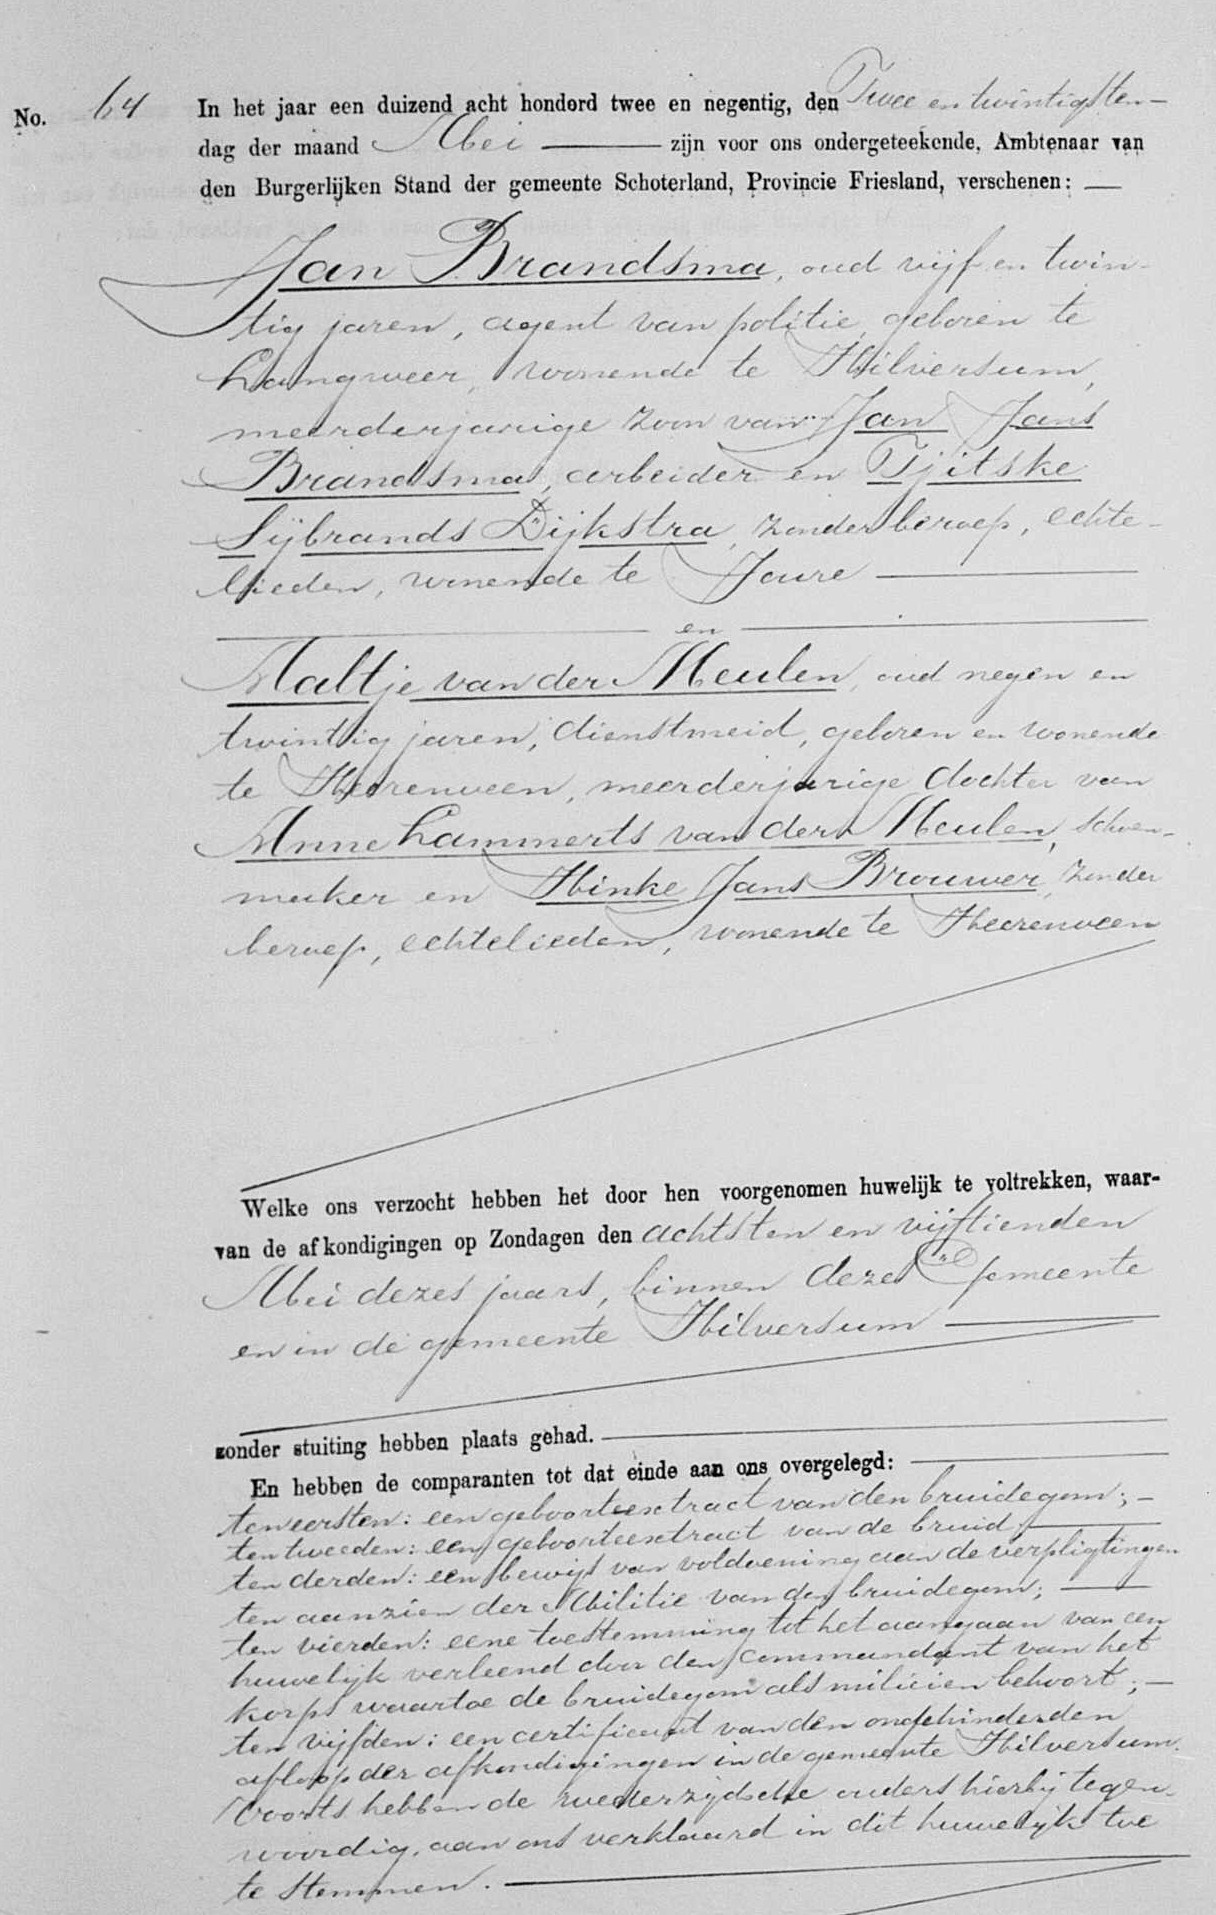 No. 64 In het jaar een duizend acht honderd twee en negentig, den Twee en twintigsten
dag der maand Mei zijn voor ons ondergeteekende, Ambtenaar van
den Burgerlijken Stand der gemeente Schoterland, Provincie Friesland, verschenen:
Jan Brandsma, oud vijf en twin-
tig jaren, agent van politie, geboren te
Langweer, wonende te Hilversum,
meerderjarige zoon van Jan Jans
Brandsma, arbeider en Tjitske
Sijbrands Dijkstra, zonder beroep, echte-
lieden, wonende te Joure
en
Maltje van der Meulen, oud negen en
twintig jaren, dienstmeid, geboren en wonende
te Heerenveen, meerderjarige dochter van
Anne Lammerts van der Meulen, schoen-
maker en Hinke Jans Brouwer, zonder
beroep, echtelieden, wonende te Heerenveen
Welke ons verzocht hebben het door hen voorgenomen huwelijk te voltrekken, waar-
van de afkondigingen op Zondagen den achtsten en vijftienden
Mei dezes jaars, binnen deze Gemeente
en in de gemeente Hilversum
zonder stuiting hebben plaats gehad.
En hebben de comparanten tot dat einde aan ons overgelegd:
ten eersten: een geboorteextract van den bruidegom;
ten tweeden: een geboorteextract van de bruid;
ten derden: een bewijs van voldoening aan de verpligtingen
ten aanzien der Militie van den bruidegom;
ten vierden: eene toestemming tot het aangaan van een
huwelijk verleend door den Commandant van het
korps waartoe de bruidegom als milicien behoort;
ten vijfden: een certificaat van den ongehinderden
afloop der afkondigingen in de gemeente Hilversum.
Voorts hebben de wederzijdsche ouders hierbij tegen-
woordig, aan ons verklaard in dit huwelijk toe
te stemmen.